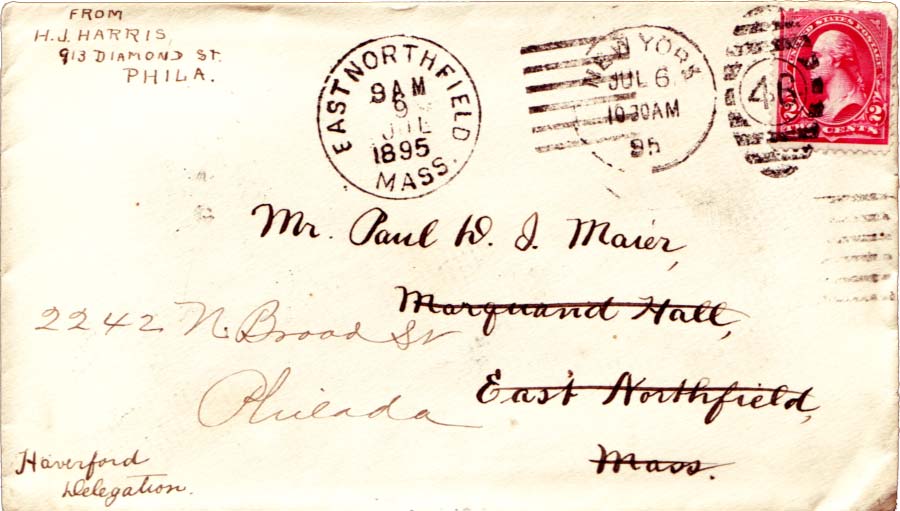 FROM
H. J. HARRIS,
913 DIAMOND ST.
PHILA.
EAST NORTHFIELD
9 AM
9
JUL
1895
MASS.
NEW YORK
JUL 6
10 30 AM
95
43
UNITED STATES POSTAGE
2 2
CENTS
Mr. Paul D. I. Maier,
Marquand Hall,
East Northfield,
Mass.
2242 N. Broad St
Philada
Haverford
Delegation.